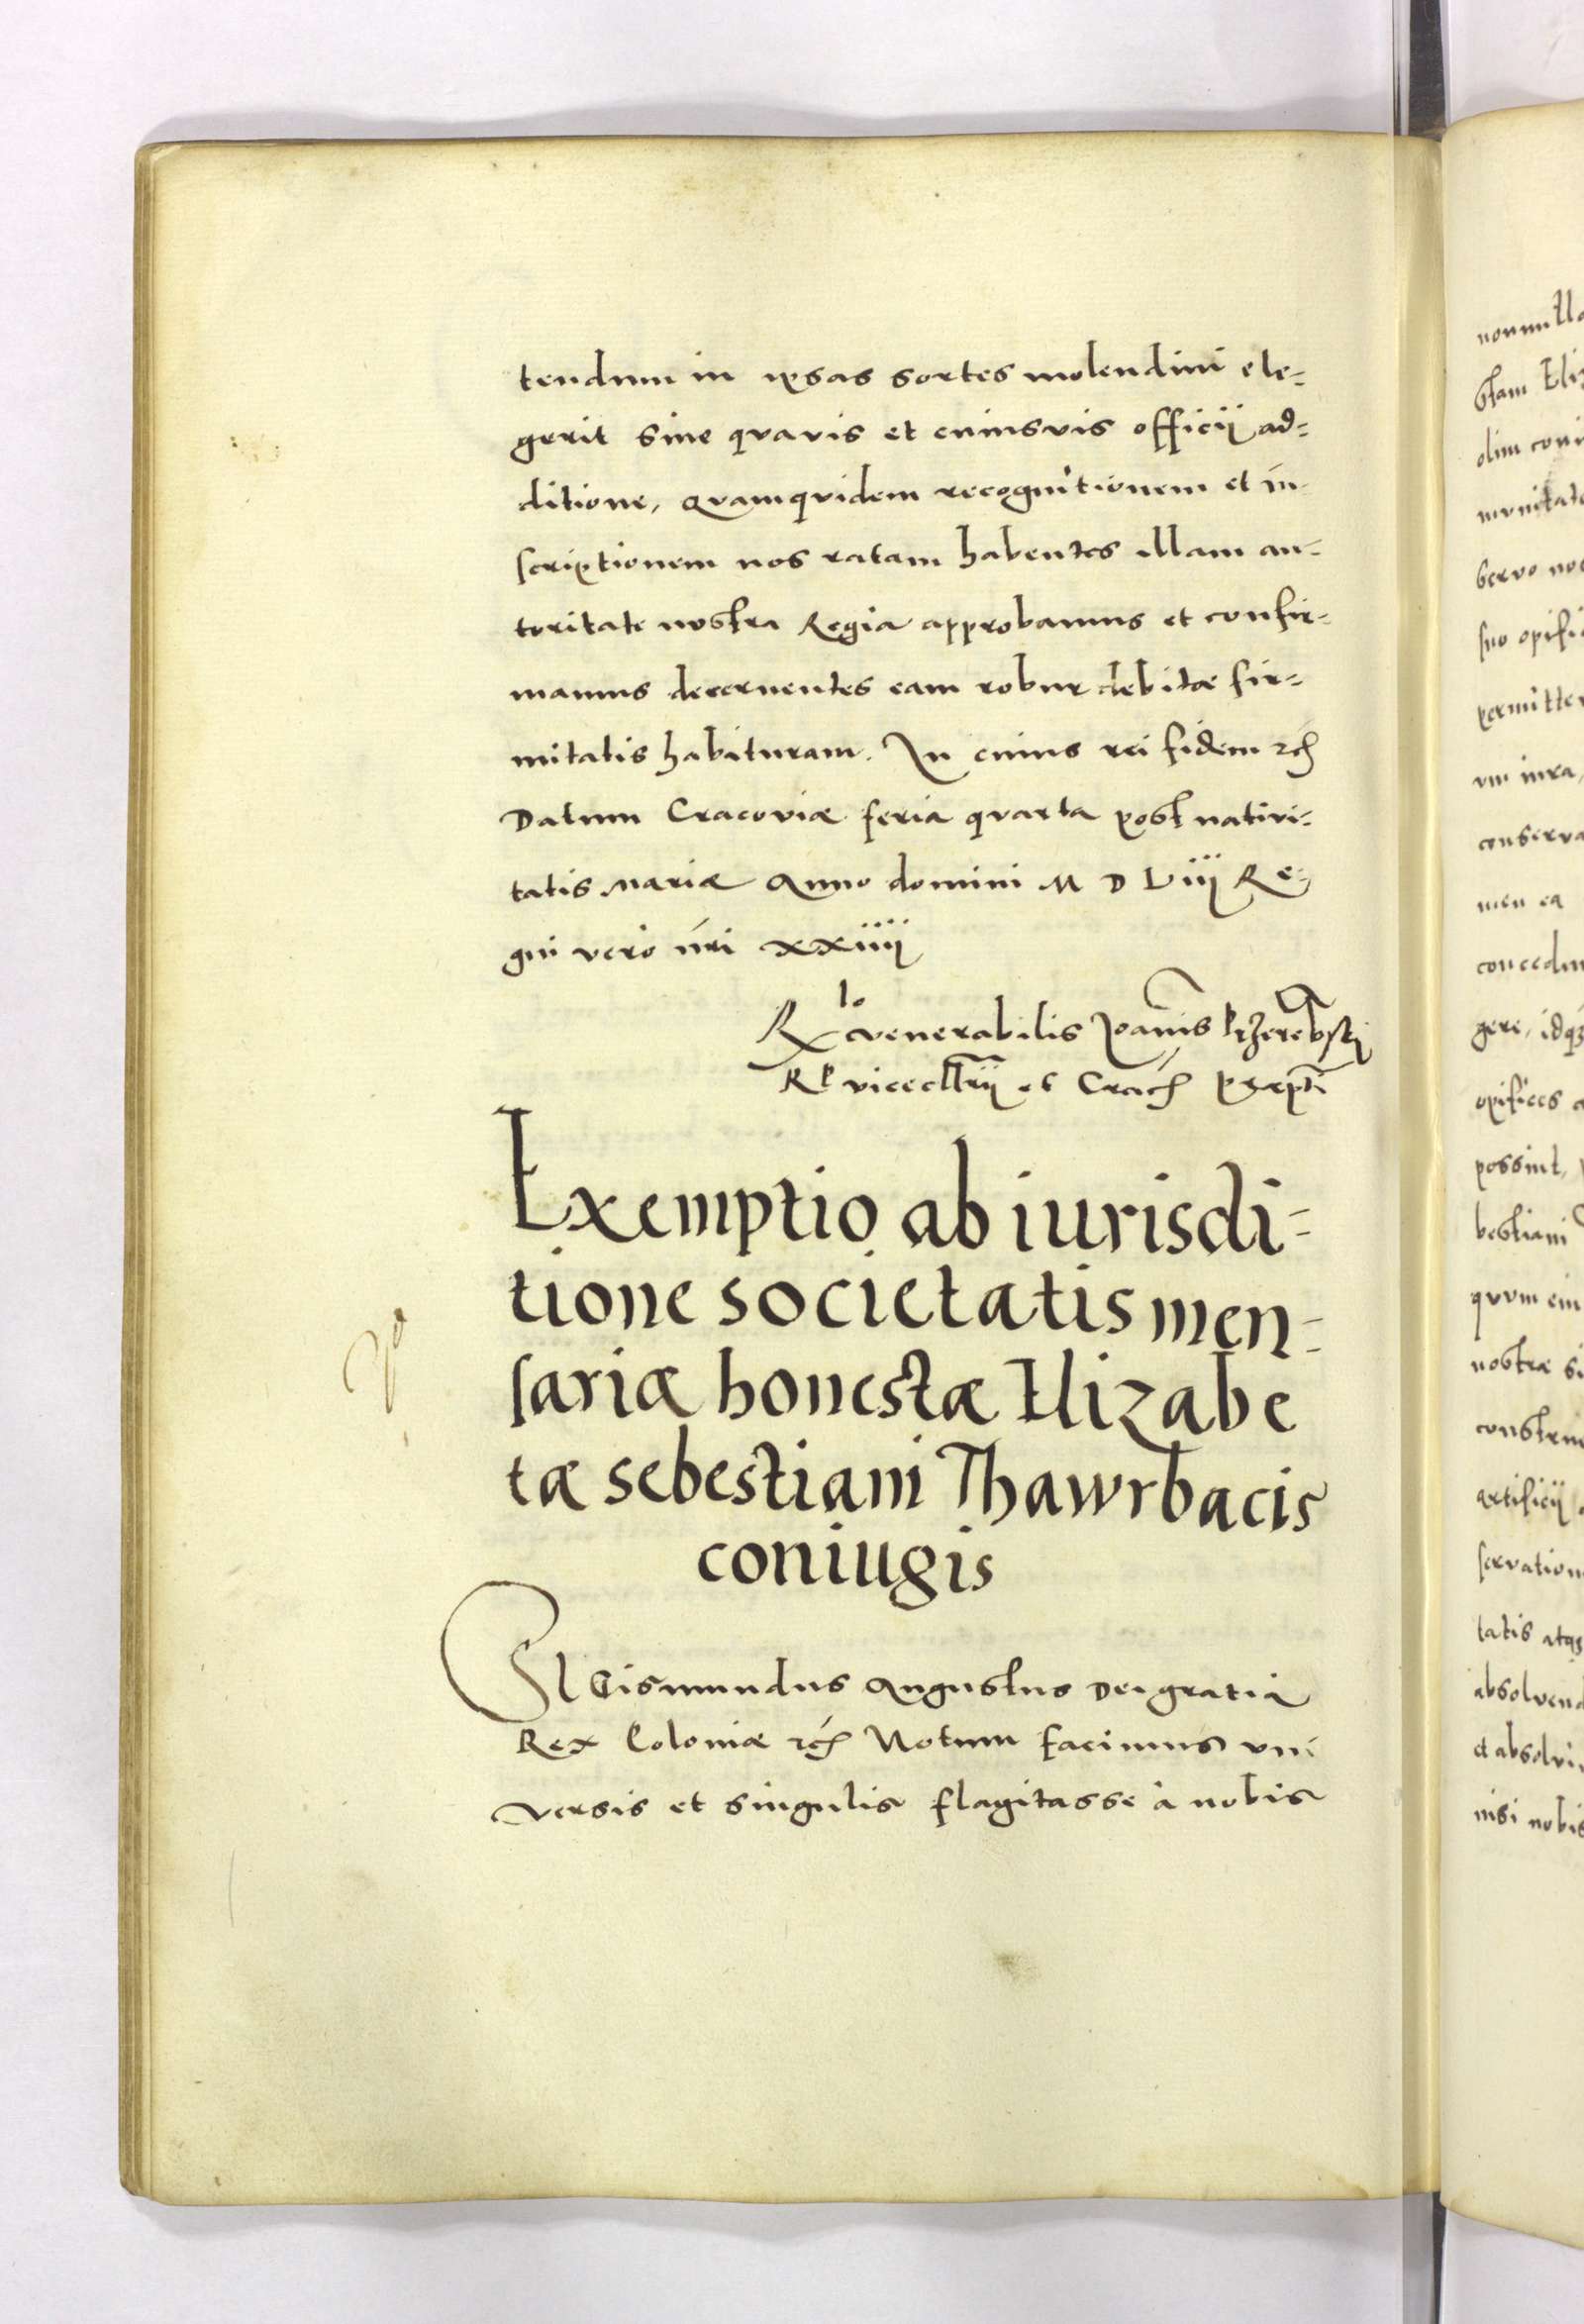 tendum in ipsas sortes molendini ele=
gerit sine quavis et cuiusvis officij ad=
ditione, Quamquidem recognitionem et in
scriptionem nos ratam habentes illam au=
toritate nostra Regia approbamus et confir=
mamus decernentes eam robur debitæ fir=
mitatis habituram. In cuius rei fidem etc̄
Datum Cracoviæ feria quarta post nativi=
tatis Mariæ Anno domini M D Liij Re=
gni vero n̄ri xxiiij
R^lo venerabilis Joannis Przerebski
RP vicecllrij et Crac̄
Exemptio ab iurisdi=
tione societatis men=
sariæ honestæ Elizabe
tæ sebestiani Thawrbacis
coniugis
SIGismundus Augustus Dei gratia
Rex Poloniæ etc̄ Notum facimus vni
versis et singulis flagitasse à nobis
nonnullo
Eliz
olim coni
munitate
servo
suo opifi
permitte
um iura,
conserva
men ea
concedim
gere, idq
opifices
possint,
bestiani
quum eiu
nostræ si
constru
artificij
servation
tatis atq
absolven
et absolvi
nisi nobis